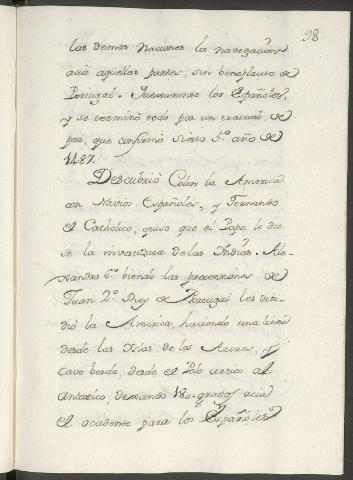 98
las demas naciones la navegacion
acia aquellas partes, sin beneplacito de
Portugal. Quexaronse los Españoles,
y se terminó todo por un tratado de
paz, que confirmó Sixto 5.º año de
1487.
Descubrió Colon la America
con Navios Españoles, y Fernando
el Catholico, quiso que el Papa le die-
se la investidura de las Indias. Ale-
xandro 6.º biendo las pretensiones de
Juan 2.º Rey de Portugal les divi-
dió la America, haciendo una linea
desde las Yslas de los Azores, y
Cavo berde, desde el Polo artico al
Antartico, dexando 180. grados acia
el occidente para los Españoles